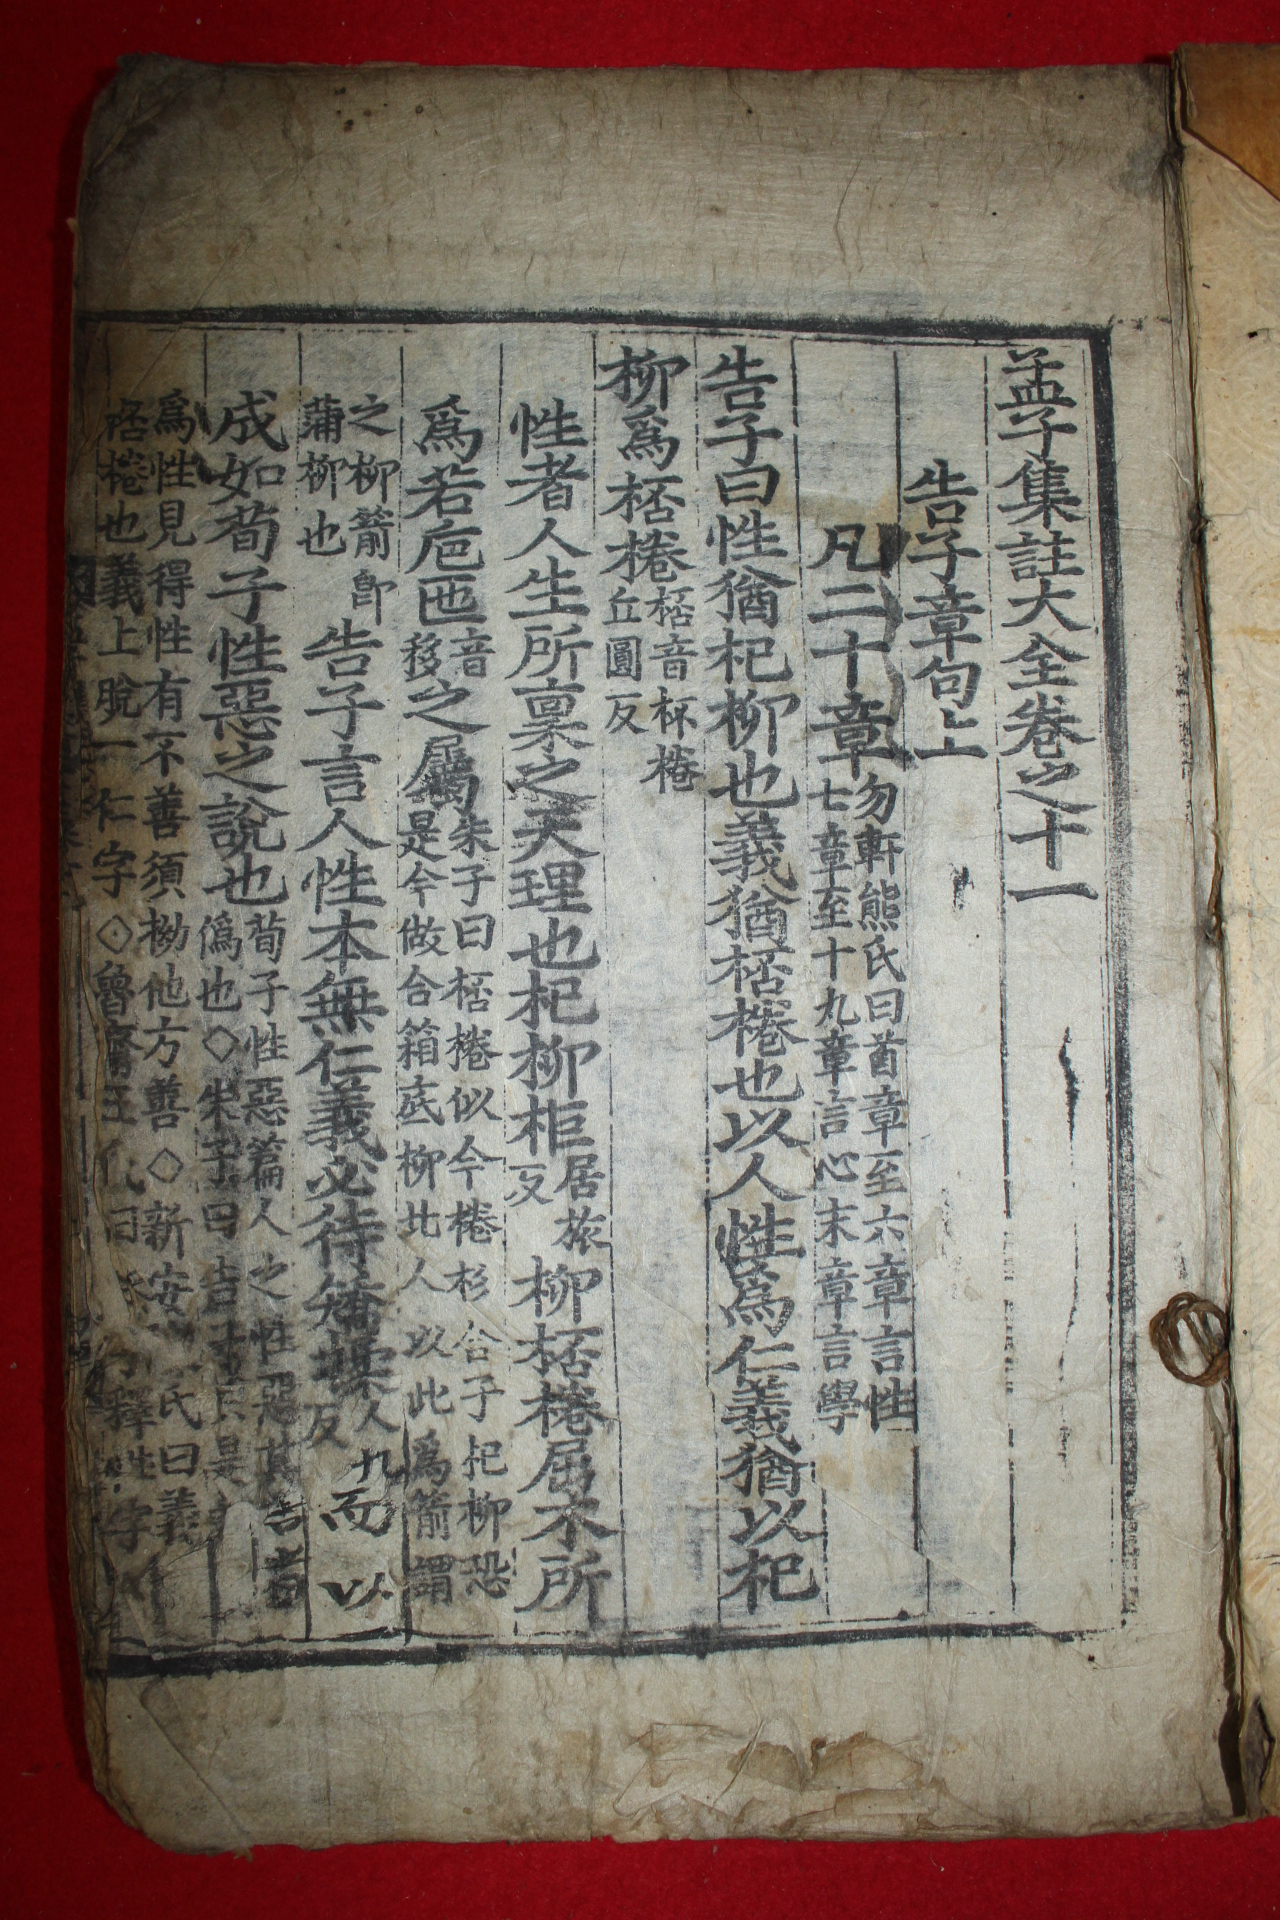 孟子集註大全卷之十一
告子章句上
凡二十章勿軒熊氏曰首章至六章言性
七章至十九章言心末章言學
告子曰性猶杞柳也義猶桮棬也以人性爲仁義猶以杞
柳爲桮棬桮音杯棬
丘圓反
性者人生所稟之天理也杞柳柜居旅
反柳桮棬屈木所
爲若巵匜音
移之屬朱子曰桮棬似今棬杉合子杞柳恐
是今做合箱底柳北人以此爲箭謂
之柳箭即
蒲柳也告子言人性本無仁義必待矯揉人九
反而以
成如荀子性惡之說也荀子性惡篇人之性惡其善者
僞也◇朱子曰告子只是
爲性見得性有不善須拗他方善◇新安 氏曰義
桮棬也義上脫一仁字◇魯齋王氏曰 釋性字